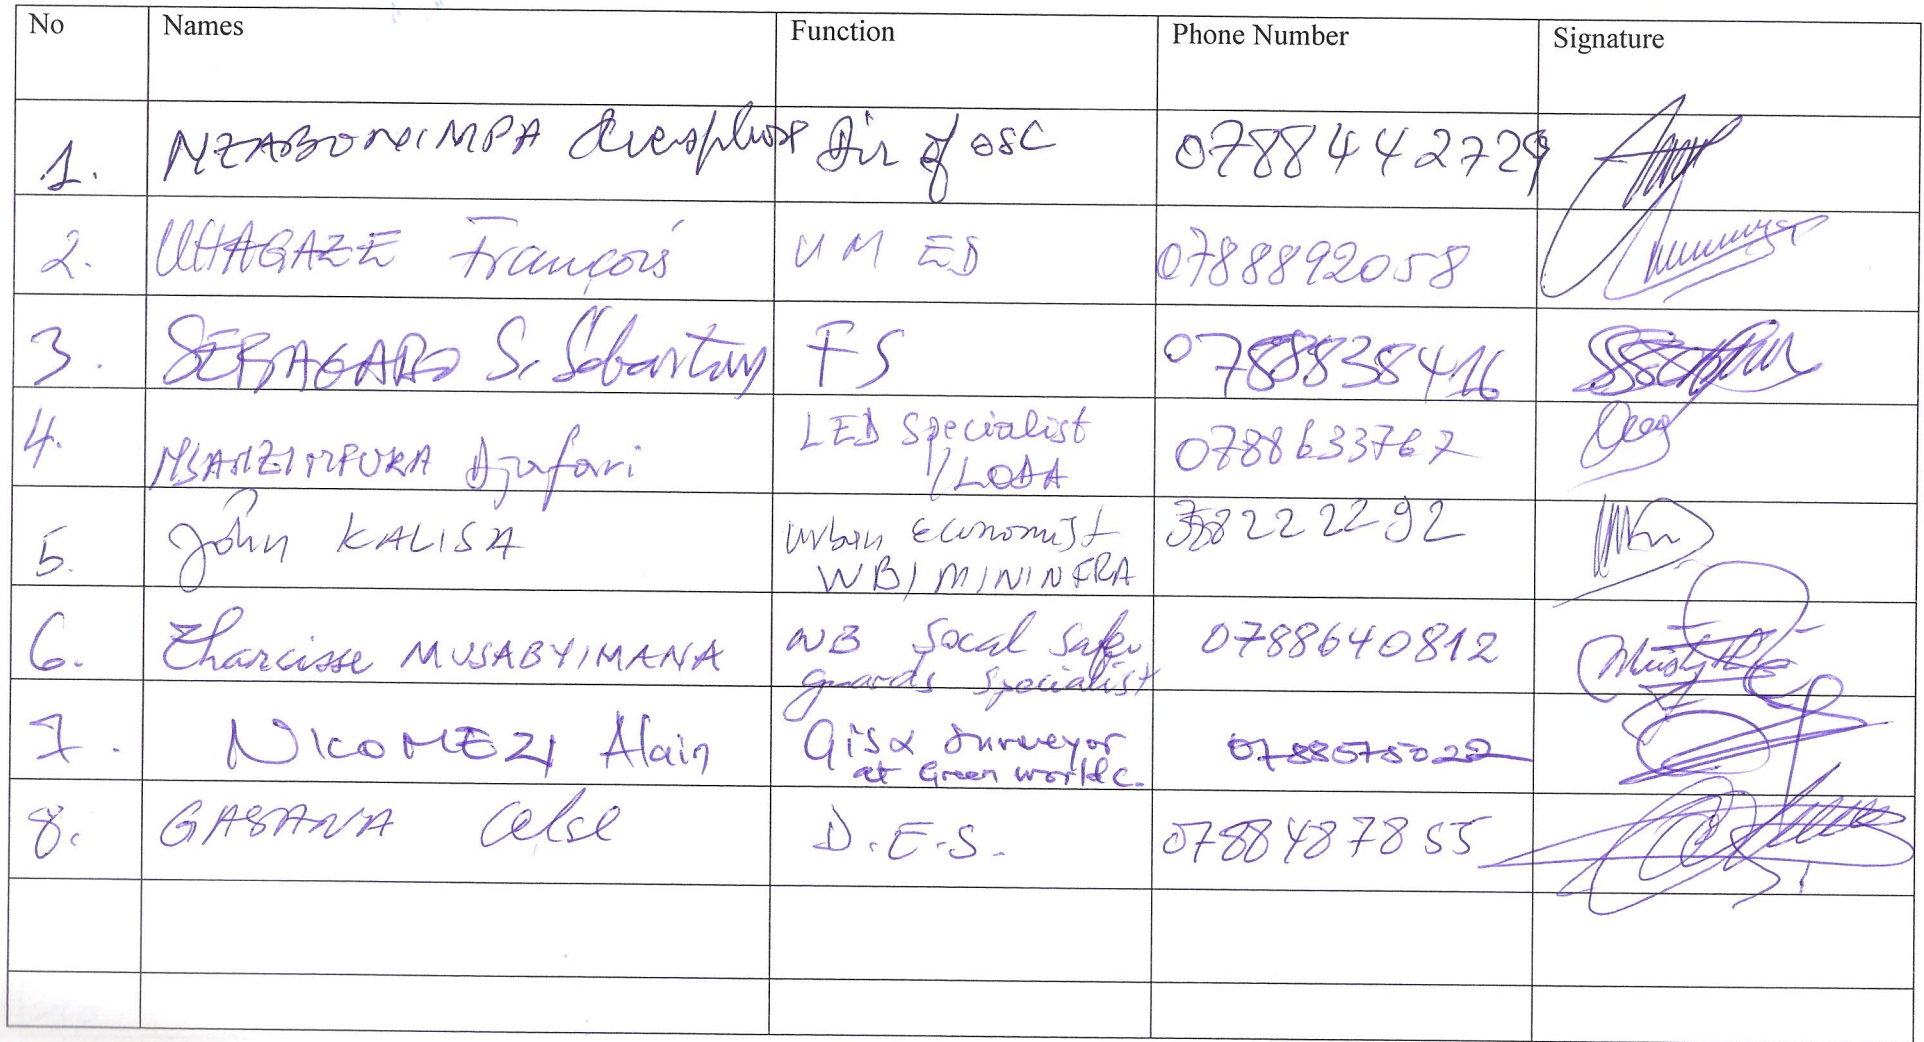 No Names Function Phone Number Signature
1. NZABONIMPA Cleophas Dir of OSC 0788442729
2. UHAGAZE François UM ED 0788892058
3. SEBAGABO S. FS 0788838416
4. NSANZIMFURA Djafari LED Specialist 0788633767
/LODA
5. John KALISA Urban Economist 388222292
WB/MININFRA
6. Tharcisse MUSABYIMANA WB Socal Safe 0788640812
guards Specialist
7. NIKOMEZI Alain Gis & Surveyor
at Green World C.
8. GASANA Celse D.E.S. 0788487855